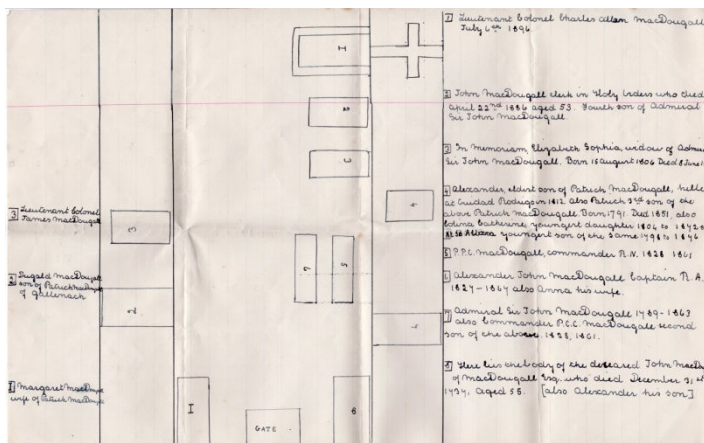 3 Lieutenant Colonel
James MacDougall
2 Dugald MacDougall
son of Patrick MacDougall
of Gallanach
1 Margaret MacDougall
wife of Patrick MacDougall
1
2
3
4
3
2
7
5
6
1
8
GATE
1 Lieutenant Colonel Charles Allan MacDougall
July 6th 1896.
2 John MacDougall clerk in Holy Orders who died
April 22nd 1886 aged 53. Fourth son of Admiral
Sir John MacDougall.
3 In Memoriam, Elizabeth Sophia, widow of
Sir John MacDougall. Born 15 August 1806 Died 8 June
4 Alexander, eldest son of Patrick MacDougall, killed
at Ciudad Rodrigo in 1812 also Patrick 3rd son of the
above Patrick MacDougall Born 1791. Died 1851, also
Catherine youngest daughter 1804 to 1872
youngest son of the same 1798 to 1876
5 P.P.C. MacDougall, commander R.N. 1828 1861
6 Alexander John MacDougall Captain R.A.
1827-1867 also Anna his wife.
7 Admiral Sir John MacDougall 1789-1863
also Commander P.C.C. MacDougall second
son of the above. 1828, 1861.
8 Here lies the body of the deseared John
of MacDougall Esq. who died December 31st
1737, Aged 55. [also Alexander his son]